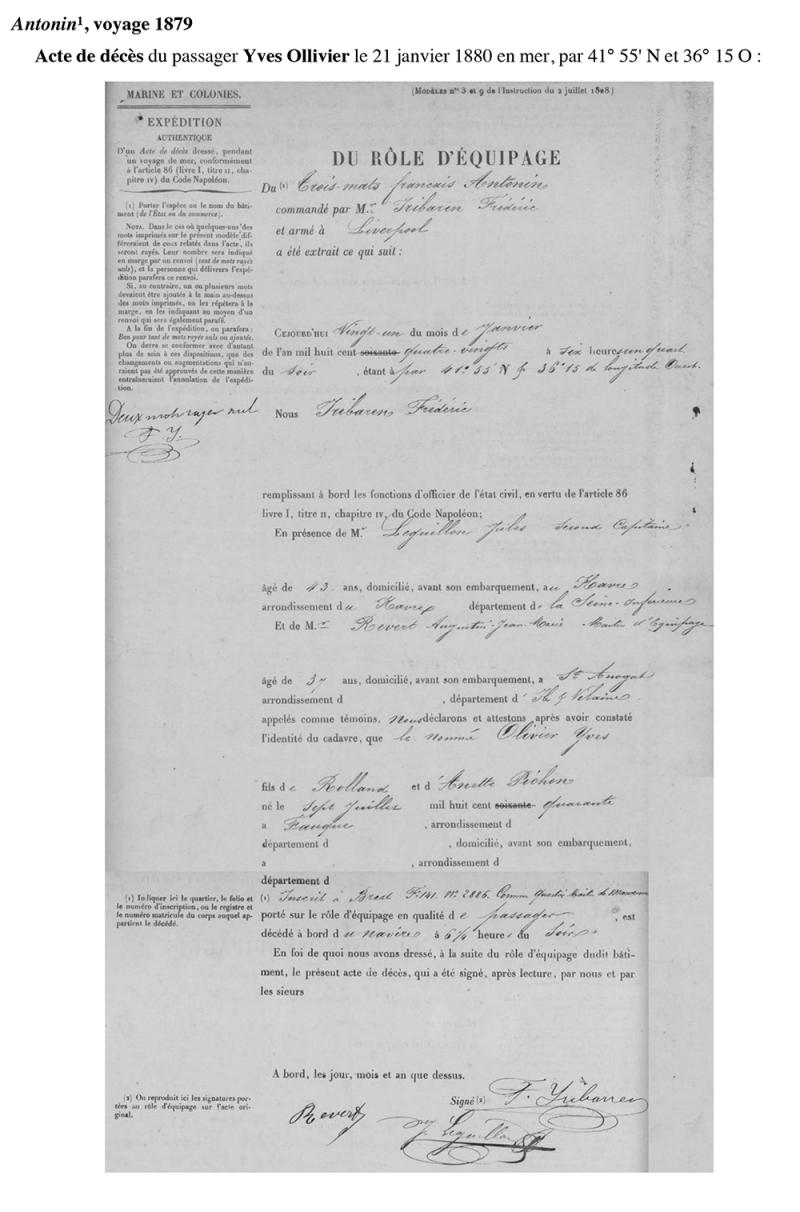 Antonin¹, voyage 1879
Acte de décès du passager Yves Ollivier le 21 janvier 1880 en mer, par 41° 55' N et 36° 15 O :
MARINE ET COLONIES.
EXPÉDITION
AUTHENTIQUE
D'un Acte de décès dressé, pendant
un voyage de mer, conformément
à l'article 86 (livre I, titre II, cha-
pitre IV) du Code Napoléon.
(1) Porter l'espèce ou le nom du bâti-
ment (de l'État ou du commerce).
NOTA. Dans le cas où quelques-uns des
mots imprimés sur le présent modèle dif-
féreraient de ceux relatés dans l'acte, ils
seront rayés. Leur nombre sera indiqué
en marge par un renvoi (tant de mots rayés
nuls), et la personne qui délivrera l'expé-
dition parafera ce renvoi.
Si, au contraire, un ou plusieurs mots
devaient être ajoutés à la main au-dessus
des mots imprimés, on les répétera à la
marge, en les indiquant au moyen d'un
renvoi qui sera également parafé.
A la fin de l'expédition, on parafera :
Bon pour tant de mots rayés nuls ou ajoutés.
On devra se conformer avec d'autant
plus de soin à ces dispositions, que des
changements ou augmentations qui n'au-
raient pas été approuvés de cette manière
entraîneraient l'annulation de l'expédi-
tion.
Deux mots rayer nul
F. Y.
(MODÈLES nos 3 et 9 de l'Instruction du 2 juillet 1828)
DU RÔLE D'ÉQUIPAGE
Du (1) Trois-mats français Antonin
commandé par M.r Iribaren Frédéric
et armé à Liverpool
a été extrait ce qui suit :
CEJOURD'HUI Vingt-un du mois de Janvier
de l'an mil huit cent soixante quatre-vingts à six heures un quart
du soir , étant à par 41° 55 N & 36° 15 de longitude Ouest.
Nous Iribaren Frédéric
remplissant à bord les fonctions d'officier de l'état civil, en vertu de l'article 86
livre I, titre II, chapitre IV, du Code Napoléon;
En présence de M.r Lequillon Jules Second Capitaine
âgé de 43 ans, domicilié, avant son embarquement, au Havre
arrondissement du Havre département de la Seine-Inférieure
Et de M.r Revert Augustin-Jean-Marie Maitre d'Equipage
âgé de 37 ans, domicilié, avant son embarquement, a St Enogat
arrondissement d , département d' Ile & Vilaine
appelés comme témoins, Nous déclarons et attestons après avoir constaté
l'identité du cadavre, que le nommé Olivier Yves
fils de Rolland et d'Anette Pichon
né le sept Juillet mil huit cent soixante quarante
a , arrondissement d
département d , domicilié, avant son embarquement,
a , arrondissement d
département d
(1) Indiquer ici le quartier, le folio et
le numéro d'inscription, ou le registre et
le numéro matricule du corps auquel ap-
partient le décédé.
(1) Inscrit à Brest F° 141. N° 2886.
porté sur le rôle d'équipage en qualité de passager , est
décédé à bord du navire à 6 ¼ heures du Soir
En foi de quoi nous avons dressé, à la suite du rôle d'équipage dudit bâti-
ment, le présent acte de décès, qui a été signé, après lecture, par nous et par
les sieurs
A bord, les jour, mois et an que dessus.
(2) On reproduit ici les signatures por-
tées au rôle d'équipage sur l'acte ori-
ginal.
Signé (2) F. Yribarren
Revert
Lequillon